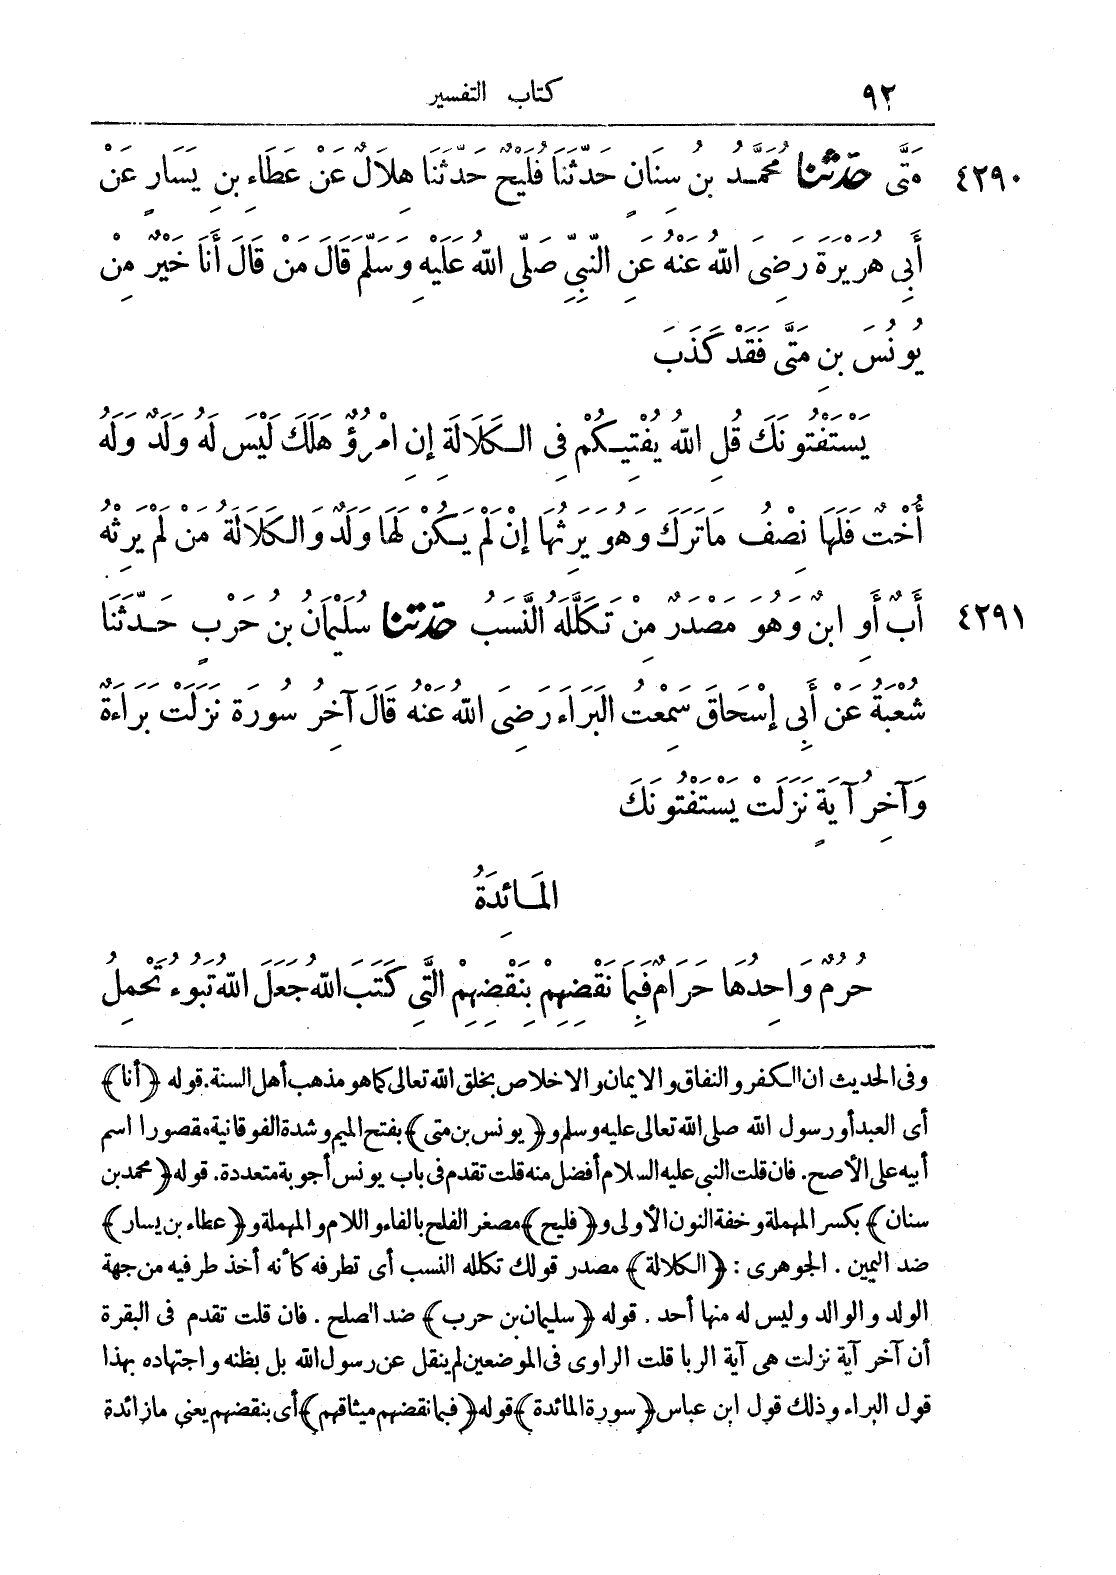 ٩٢ كتاب التفسير
٤٢٩٠ مَتَّى حدّثنا مُحَمَّدُ بنُ سِنَانٍ حَدَّثَنَا فُلَيْحٌ حَدَّثَنَا هِلَالٌ عَنْ عَطَاءِ بنِ يَسَارٍ عَنْ
أَبِى هُرَيْرَةَ رَضِىَ اللهُ عَنْهُ عَنِ النَّبِيِّ صَلَّى اللهُ عَلَيْهِ وَسَلَّمَ قَالَ مَنْ قَالَ أَنَا خَيْرٌ مِنْ
يُونُسَ بنِ مَتَّى فَقَدْ كَذَبَ
يَسْتَفْتُونَكَ قُلِ اللهُ يُفْتِيكُمْ فِى الكَلَالَةِ إِنِ امْرُؤٌ هَلَكَ لَيْسَ لَهُ وَلَدٌ وَلَهُ
أُخْتٌ فَلَهَا نِصْفُ مَا تَرَكَ وَهُوَ يَرِثُهَا إِنْ لَمْ يَكُنْ لَهَا وَلَدٌ وَالكَلَالَةُ مَنْ لَمْ يَرِثْهُ
٤٢٩١ أَبٌ أَوِ ابنٌ وَهُوَ مَصْدَرٌ مِنْ تَكَلَّلَهُ النَّسَبُ حدّثنا سُلَيْمَانُ بنُ حَرْبٍ حَدَّثَنَا
شُعْبَةُ عَنْ أَبِى إِسْحَاقَ سَمِعْتُ البَرَاءَ رَضِىَ اللهُ عَنْهُ قَالَ آخِرُ سُورَةٍ نَزَلَتْ بَرَاءَةٌ
وَآخِرُ آيَةٍ نَزَلَتْ يَسْتَفْتُونَكَ
المَائِدَةُ
حُرُمٌ وَاحِدُهَا حَرَامٌ فَبِمَا نَقْضِهِمْ بِنَقْضِهِمْ الَّتِى كَتَبَ اللهُ جَعَلَ اللهُ تَبُوءُ تَحْمِلُ
وفى الحديث ان الكفر والنفاق والايمان والاخلاص بخلق الله تعالى كما هو مذهب أهل السنة. قوله ﴿أنا﴾
أى العبد أو رسول الله صلى الله تعالى عليه وسلم و﴿يونس بن متى﴾ بفتح الميم وشدة الفوقانية مقصورا اسم
أبيه على الأصح. فان قلت النبى عليه السلام أفضل منه قلت تقدم فى باب يونس أجوبة متعددة. قوله ﴿محمد بن
سنان﴾ بكسر المهملة وخفة النون الأولى و﴿فليح﴾ مصغر الفلح بالفاء واللام والمهملة و﴿عطاء بن يسار﴾
ضد اليمين . الجوهرى : ﴿الكلالة﴾ مصدر قولك تكلله النسب أى تطرفه كأنه أخذ طرفيه من جهة
الولد والوالد وليس له منها أحد . قوله ﴿سليمان بن حرب﴾ ضد الصلح . فان قلت تقدم فى البقرة
أن آخر آية نزلت هى آية الربا قلت الراوى فى الموضعين لم ينقل عن رسول الله بل بظنه واجتهاده بهذا
قول البراء وذلك قول ابن عباس ﴿سورة المائدة﴾ قوله ﴿فبما نقضهم ميثاقهم﴾ أى بنقضهم يعني ما زائدة